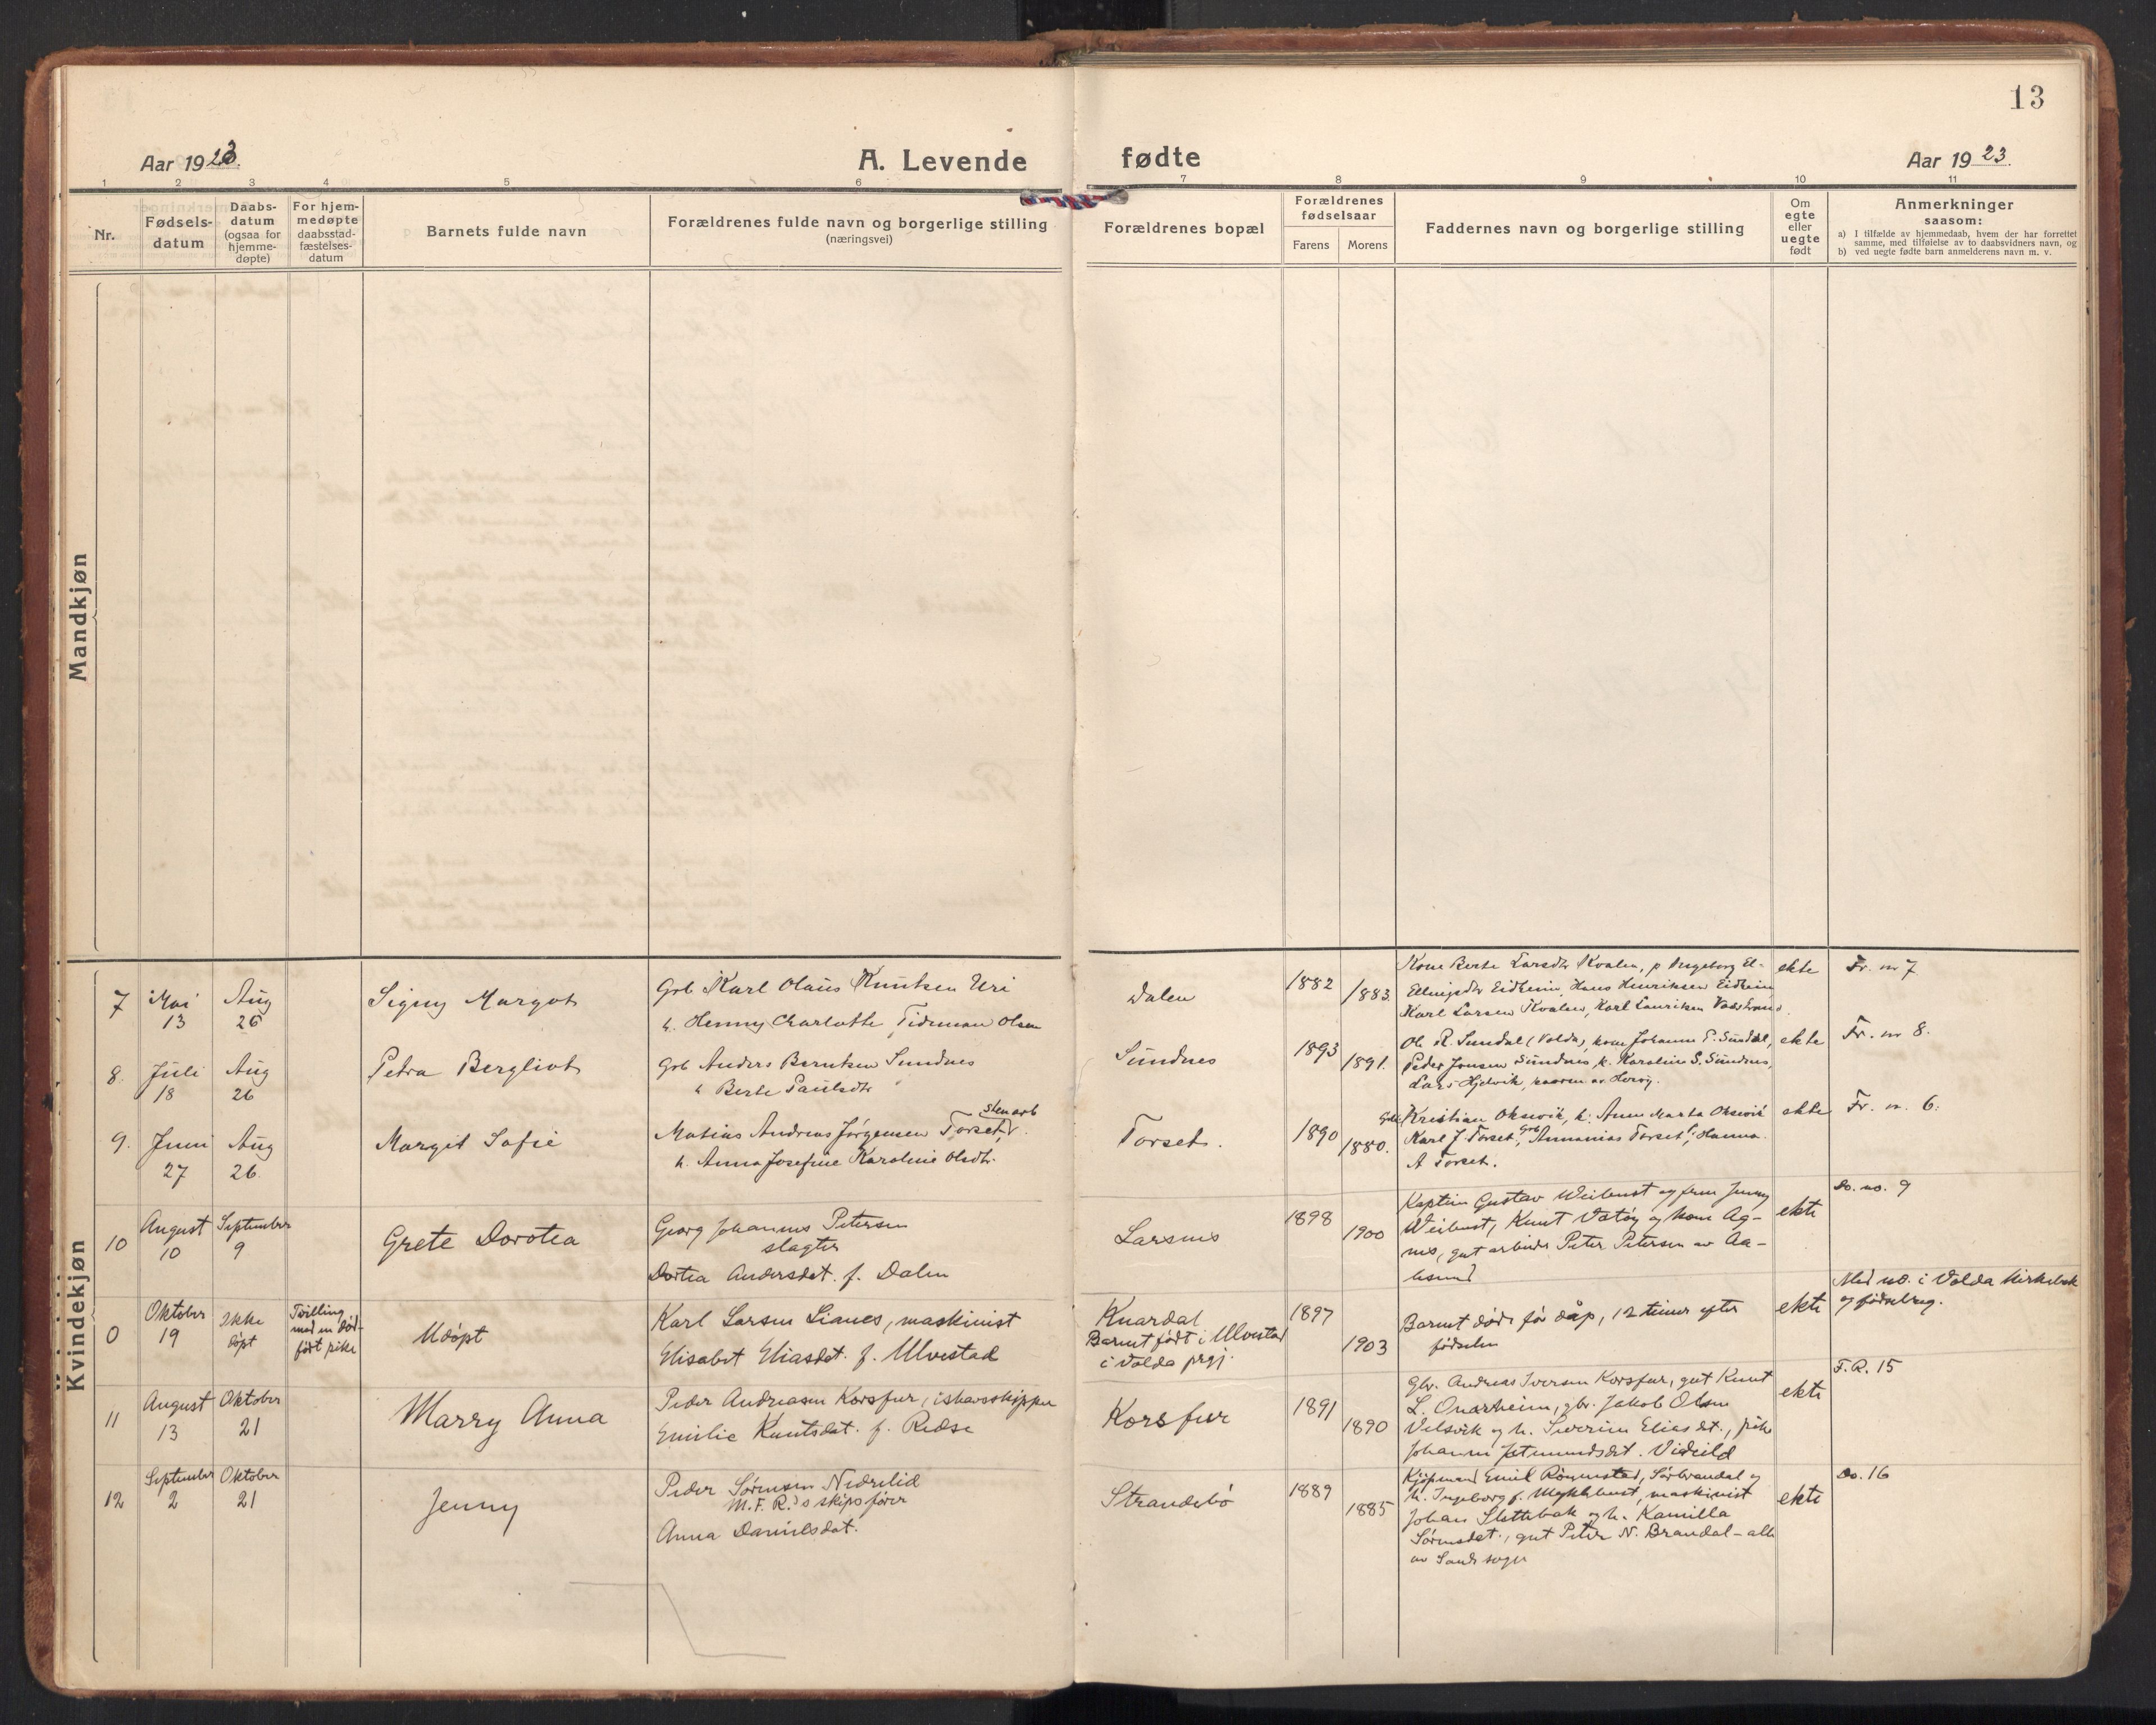 13
Aar 1923.
A. Levende fødte
Aar 1923.
1 2 3 4 5 6 7 8 9 10 11
Nr.
Fødsels-
datum
Daabs-
datum
(ogsaa for
hjemme-
døpte)
For hjem-
medøpte
daabsstad-
fæstelses-
datum
Barnets fulde navn
Forældrenes fulde navn og borgerlige stilling
(næringsvei)
Forældrenes bopæl
Forældrenes
fødselsaar
Farens Morens
Faddernes navn og borgerlige stilling
Om
egte
eller
uegte
født
Anmerkninger
saasom:
a) I tilfælde av hjemmedaab, hvem der har forrettet
samme, med tilføielse av to daabsvidners navn, og
b) ved uegte fødte barn anmelderens navn m. v.
Mandkjøn
Kvindekjøn
7
Mai
13
Aug
26
Signy Margot
Grb Karl Olaus Knutsen Uri
h. Henny Charlotte Tideman Olsen
Dalen
1882
1883.
Kone Berte Larsdtr Kvalen, p Ingeborg El-
Ellingsdtr Eidheim, Hans Henriksen Eidheim
Karl Larsen Kvalen, Karl Lauritsen
ekte
Fr. nr 7
8.
Juli
18
Aug
26
Petra Bergliot
Grb Anders Berntsen Sundnes
h Berte Paulsdtr
Sundnes
1893
1891.
Ole R. Sundal (Volda), kone Johanne E. Sundal,
Peder Jonsen Sundnes, k. Karoline S. Sundnes,
Lars Hjelvik, av Herøy.
ekte
Fr. nr 8.
9.
Juni
27
Aug
26.
Margit Sofie
Matias Andreas Jørgensen Torset, stenarb
h. Anna Josefine Karoline Olsdtr.
Torset.
1890
1880.
Grb Kristian Oksvik, h. Anne Marta Oksvik
Karl J. Torset, Grb Annanias Torset, Hanna
A Torset.
ekte
Fr. nr. 6.
10
August
10
September
9
Grete Dorotea
Georg Johannes Petersen
slagter
Dortea Andersdat. f. Dalen
Larsnes
1898
1900
Kaptein Gustav Weibust og frue Jenny
Weibust, Knut Vatøy og kone Ag-
nes, gut arbeider Peter Petersen av Aa-
lesund
ekte
Do. no. 9
0
Oktober
19
Ikke
døpt
Tvilling
med en død-
født pike
Udøpt
Karl Larsen Lianes, maskinist
Elisabet Eliasdat. f. Ulvestad
Knardal
Barnet født i Ulvestad
i Volda prgj.
1897
1903
Barnet døde før dåp, 12 timer efter
fødselen
ekte
Med no. i Volda kirkebok
og fødselsreg.
11
August
13
Oktober
21
Marry Anna
Peder Andreasen Korsfur, ishavsskipper
Emilie Knutsdat. f. Redse
Korsfur
1891
1890
Gbr. Andreas Iversen Korsfur, gut Knut
L. Onarheim, gbr. Jakob Olsen
Velsvik og h. Severine Eliasdt., pike
Johanne Jetmundsdt. Videild
ekte
F.R. 15
12
September
2
Oktober
21
Jenny
Peder Sørensen Nedrelid
M.F.R.'s skipsfører
Anna Danielsdat.
Strandebø
1889
1885
Kjøpmand Emil Rønnestad, Sørbrandal og
h. Ingeborg f. Myklebust, maskinist
Johan Slettebak og h. Kamilla
Sørensdat., gut Peter N. Brandal - alle
av Sande sogn
ekte
Do. 16